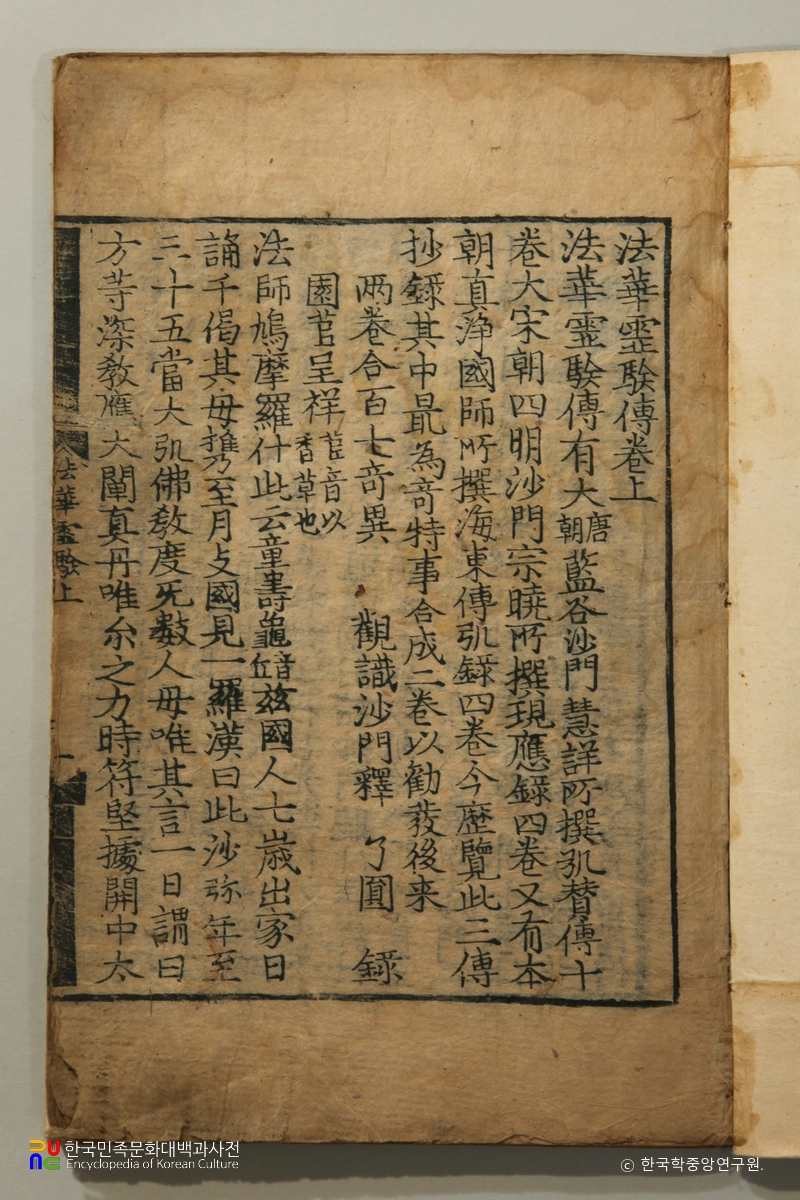 法華霊験傳卷上
法華霊験傳有大唐朝藍谷沙門慧詳所撰弘賛傳十
卷大宋朝四明沙門宗曉所撰現應録四卷又有本
朝真淨國師所撰海東傳弘録四卷今歷覽此三傳
抄録其中最為竒特事合成二卷以勸發後来
兩卷合百七竒異 觀識沙門釋 了圓 録
園苣呈祥苣音以香草也
法師鳩摩羅什此云童壽龜音丘兹國人七歲出家日
誦千偈其母携至月支國見一羅漢曰此沙弥年至
三十五當大弘佛敎度无數人母唯其言一日謂曰
方等深敎應大闡真丹唯尒之力時符堅據開中太
法華霊驗上
一
한국민족문화대백과사전
Encyclopedia of Korean Culture
© 한국학중앙연구원.